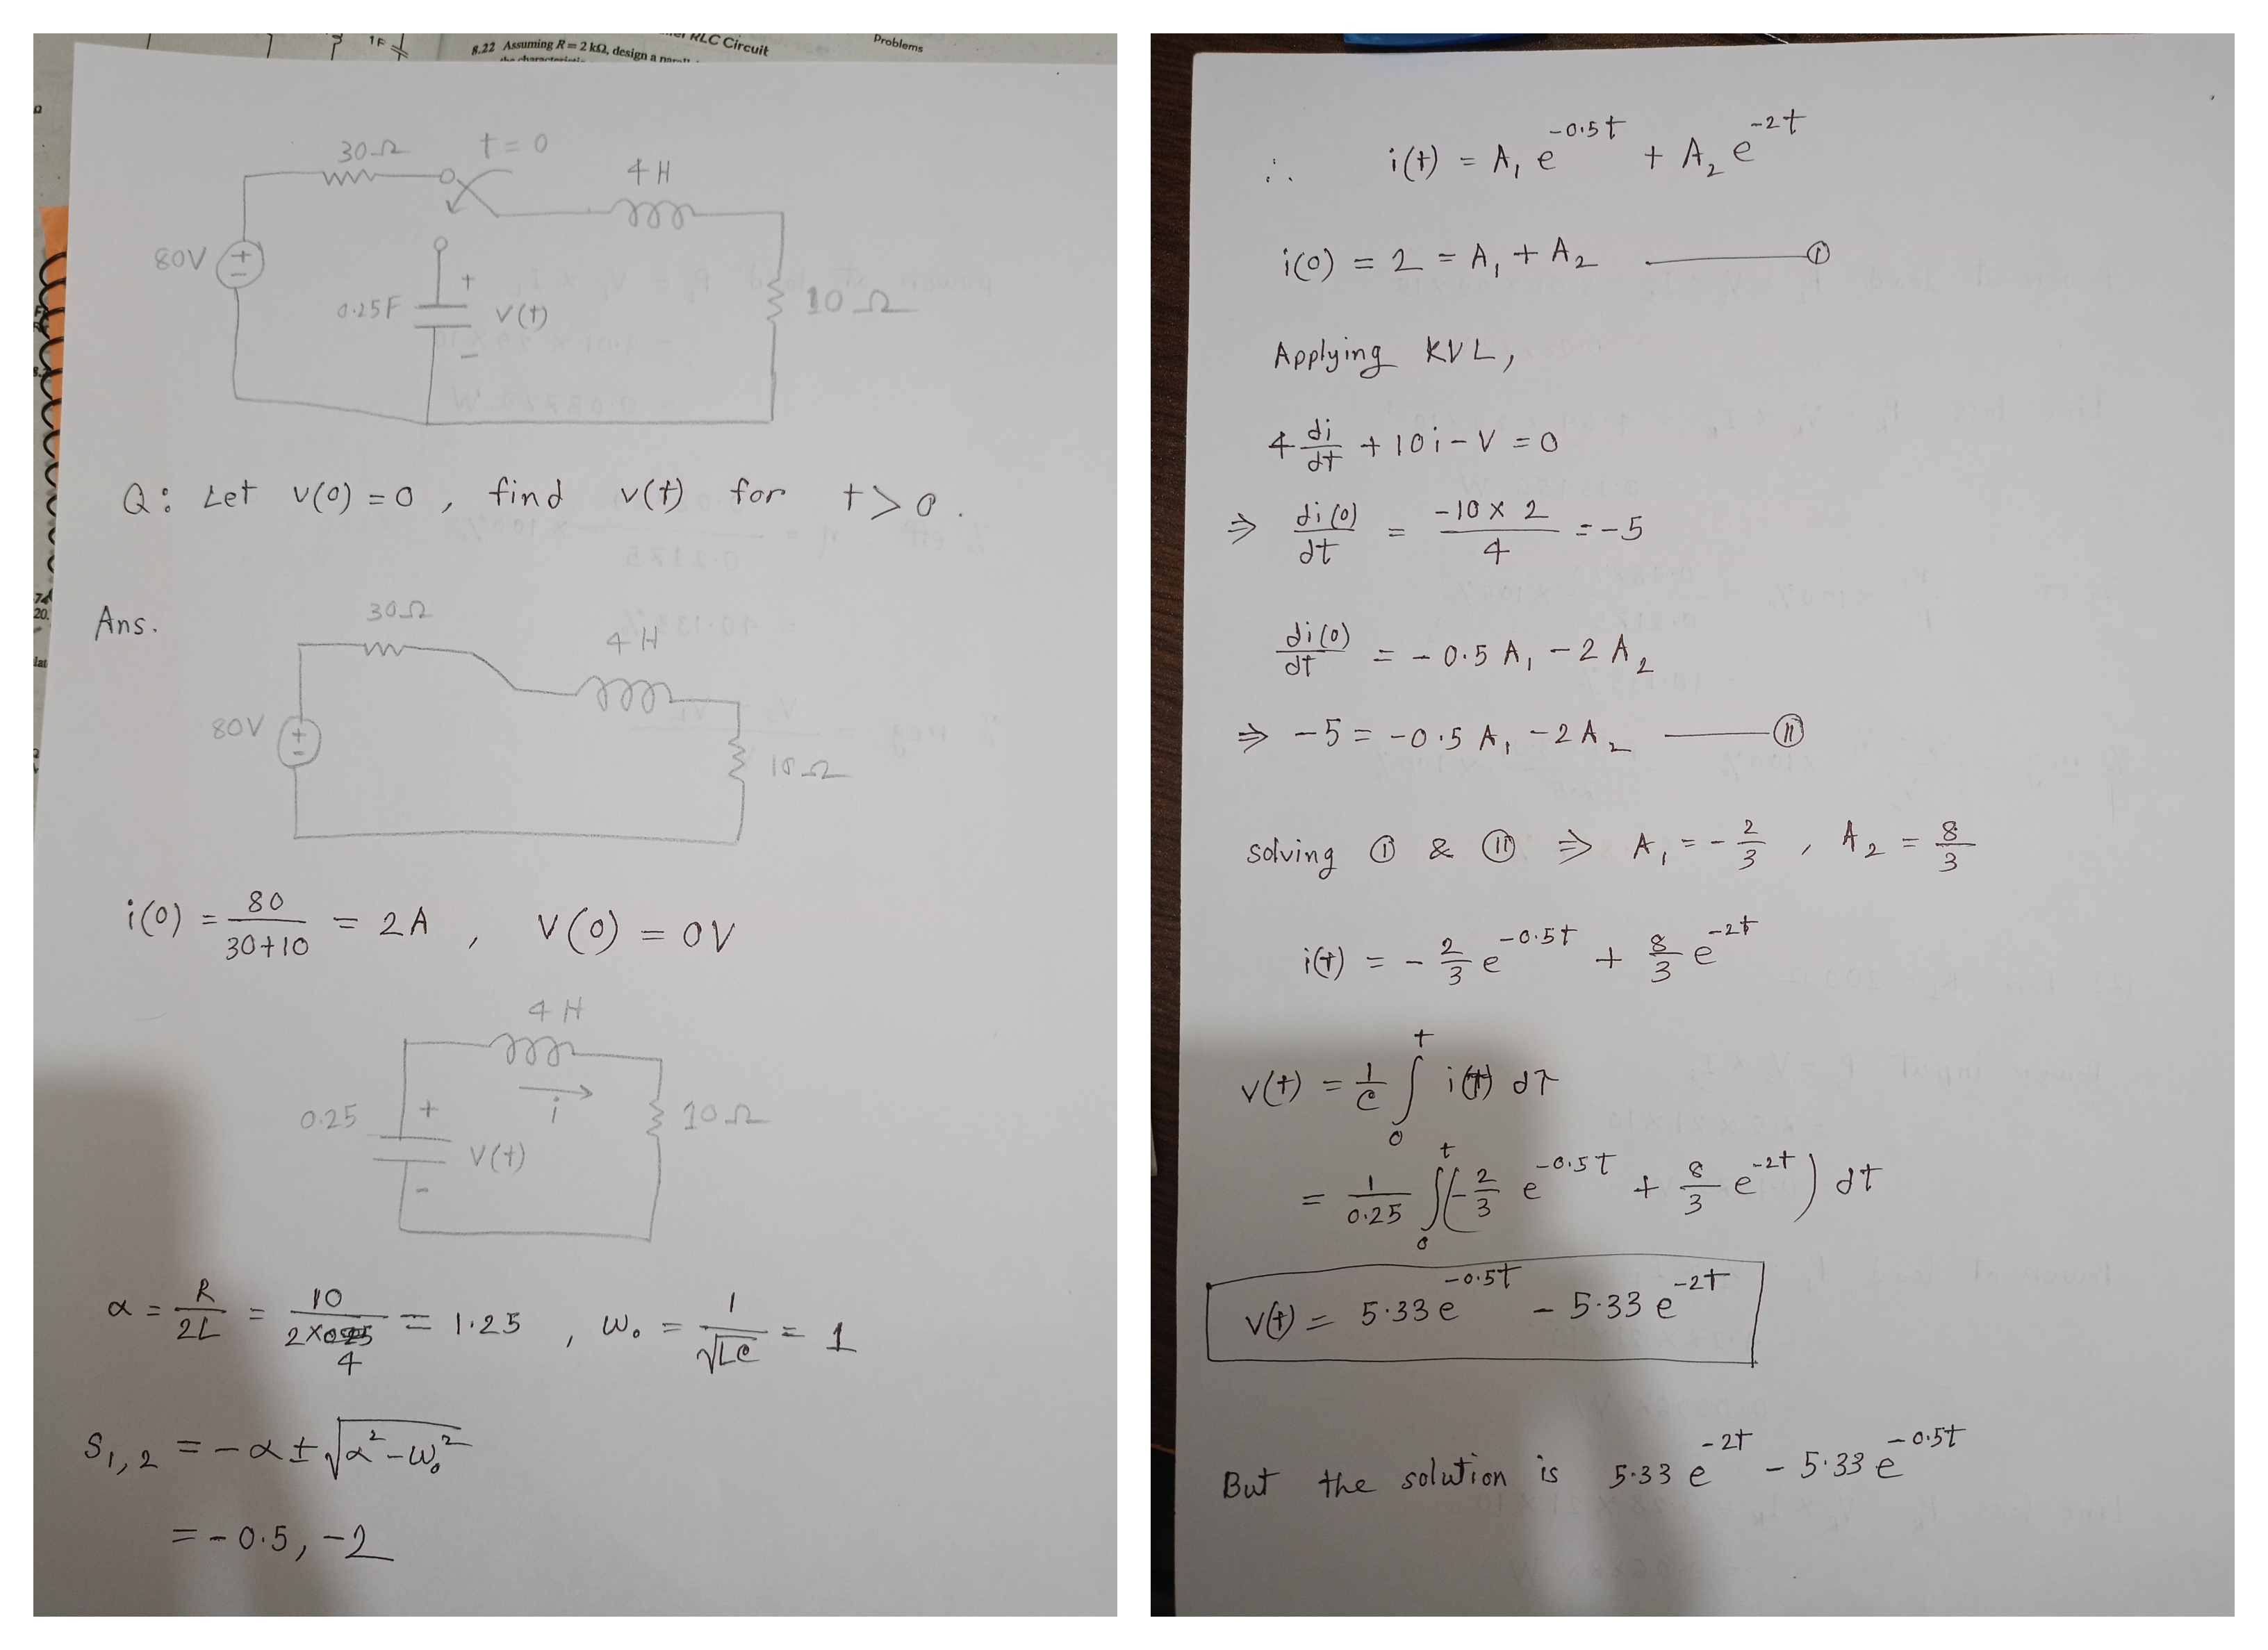 1F
RLC Circuit
Problems
8.22 Assuming R = 2 kΩ, design a
30Ω
t = 0
4 H
80V
+
-
0.25F
+
v(t)
-
10 Ω
Q: Let v(0) = 0, find v(t) for t > 0.
Ans.
30Ω
4 H
80V
+
-
10Ω
i(0) = 80/(30+10) = 2A, V(0) = 0V
4 H
i
0.25
+
V(t)
-
10Ω
α = R/2L = 10/(2×4) = 1.25, ω₀ = 1/√LC = 1
S₁,₂ = -α ± √(α² - ω₀²)
= -0.5, -2
∴ i(t) = A₁ e^(-0.5t) + A₂ e^(-2t)
i(0) = 2 = A₁ + A₂ —— Ⓘ
Applying KVL,
4 di/dt + 10i - V = 0
⇒ di(0)/dt = (-10 × 2)/4 = -5
di(0)/dt = -0.5 A₁ - 2 A₂
⇒ -5 = -0.5 A₁ - 2A₂ —— Ⓘ Ⓘ
solving Ⓘ & Ⓘ Ⓘ ⇒ A₁ = -2/3, A₂ = 8/3
i(t) = -2/3 e^(-0.5t) + 8/3 e^(-2t)
v(t) = 1/C ∫₀ᵗ i(t) dτ
= 1/0.25 ∫₀ᵗ (-2/3 e^(-0.5t) + 8/3 e^(-2t)) dt
v(t) = 5.33 e^(-0.5t) - 5.33 e^(-2t)
But the solution is 5.33 e^(-2t) - 5.33 e^(-0.5t)